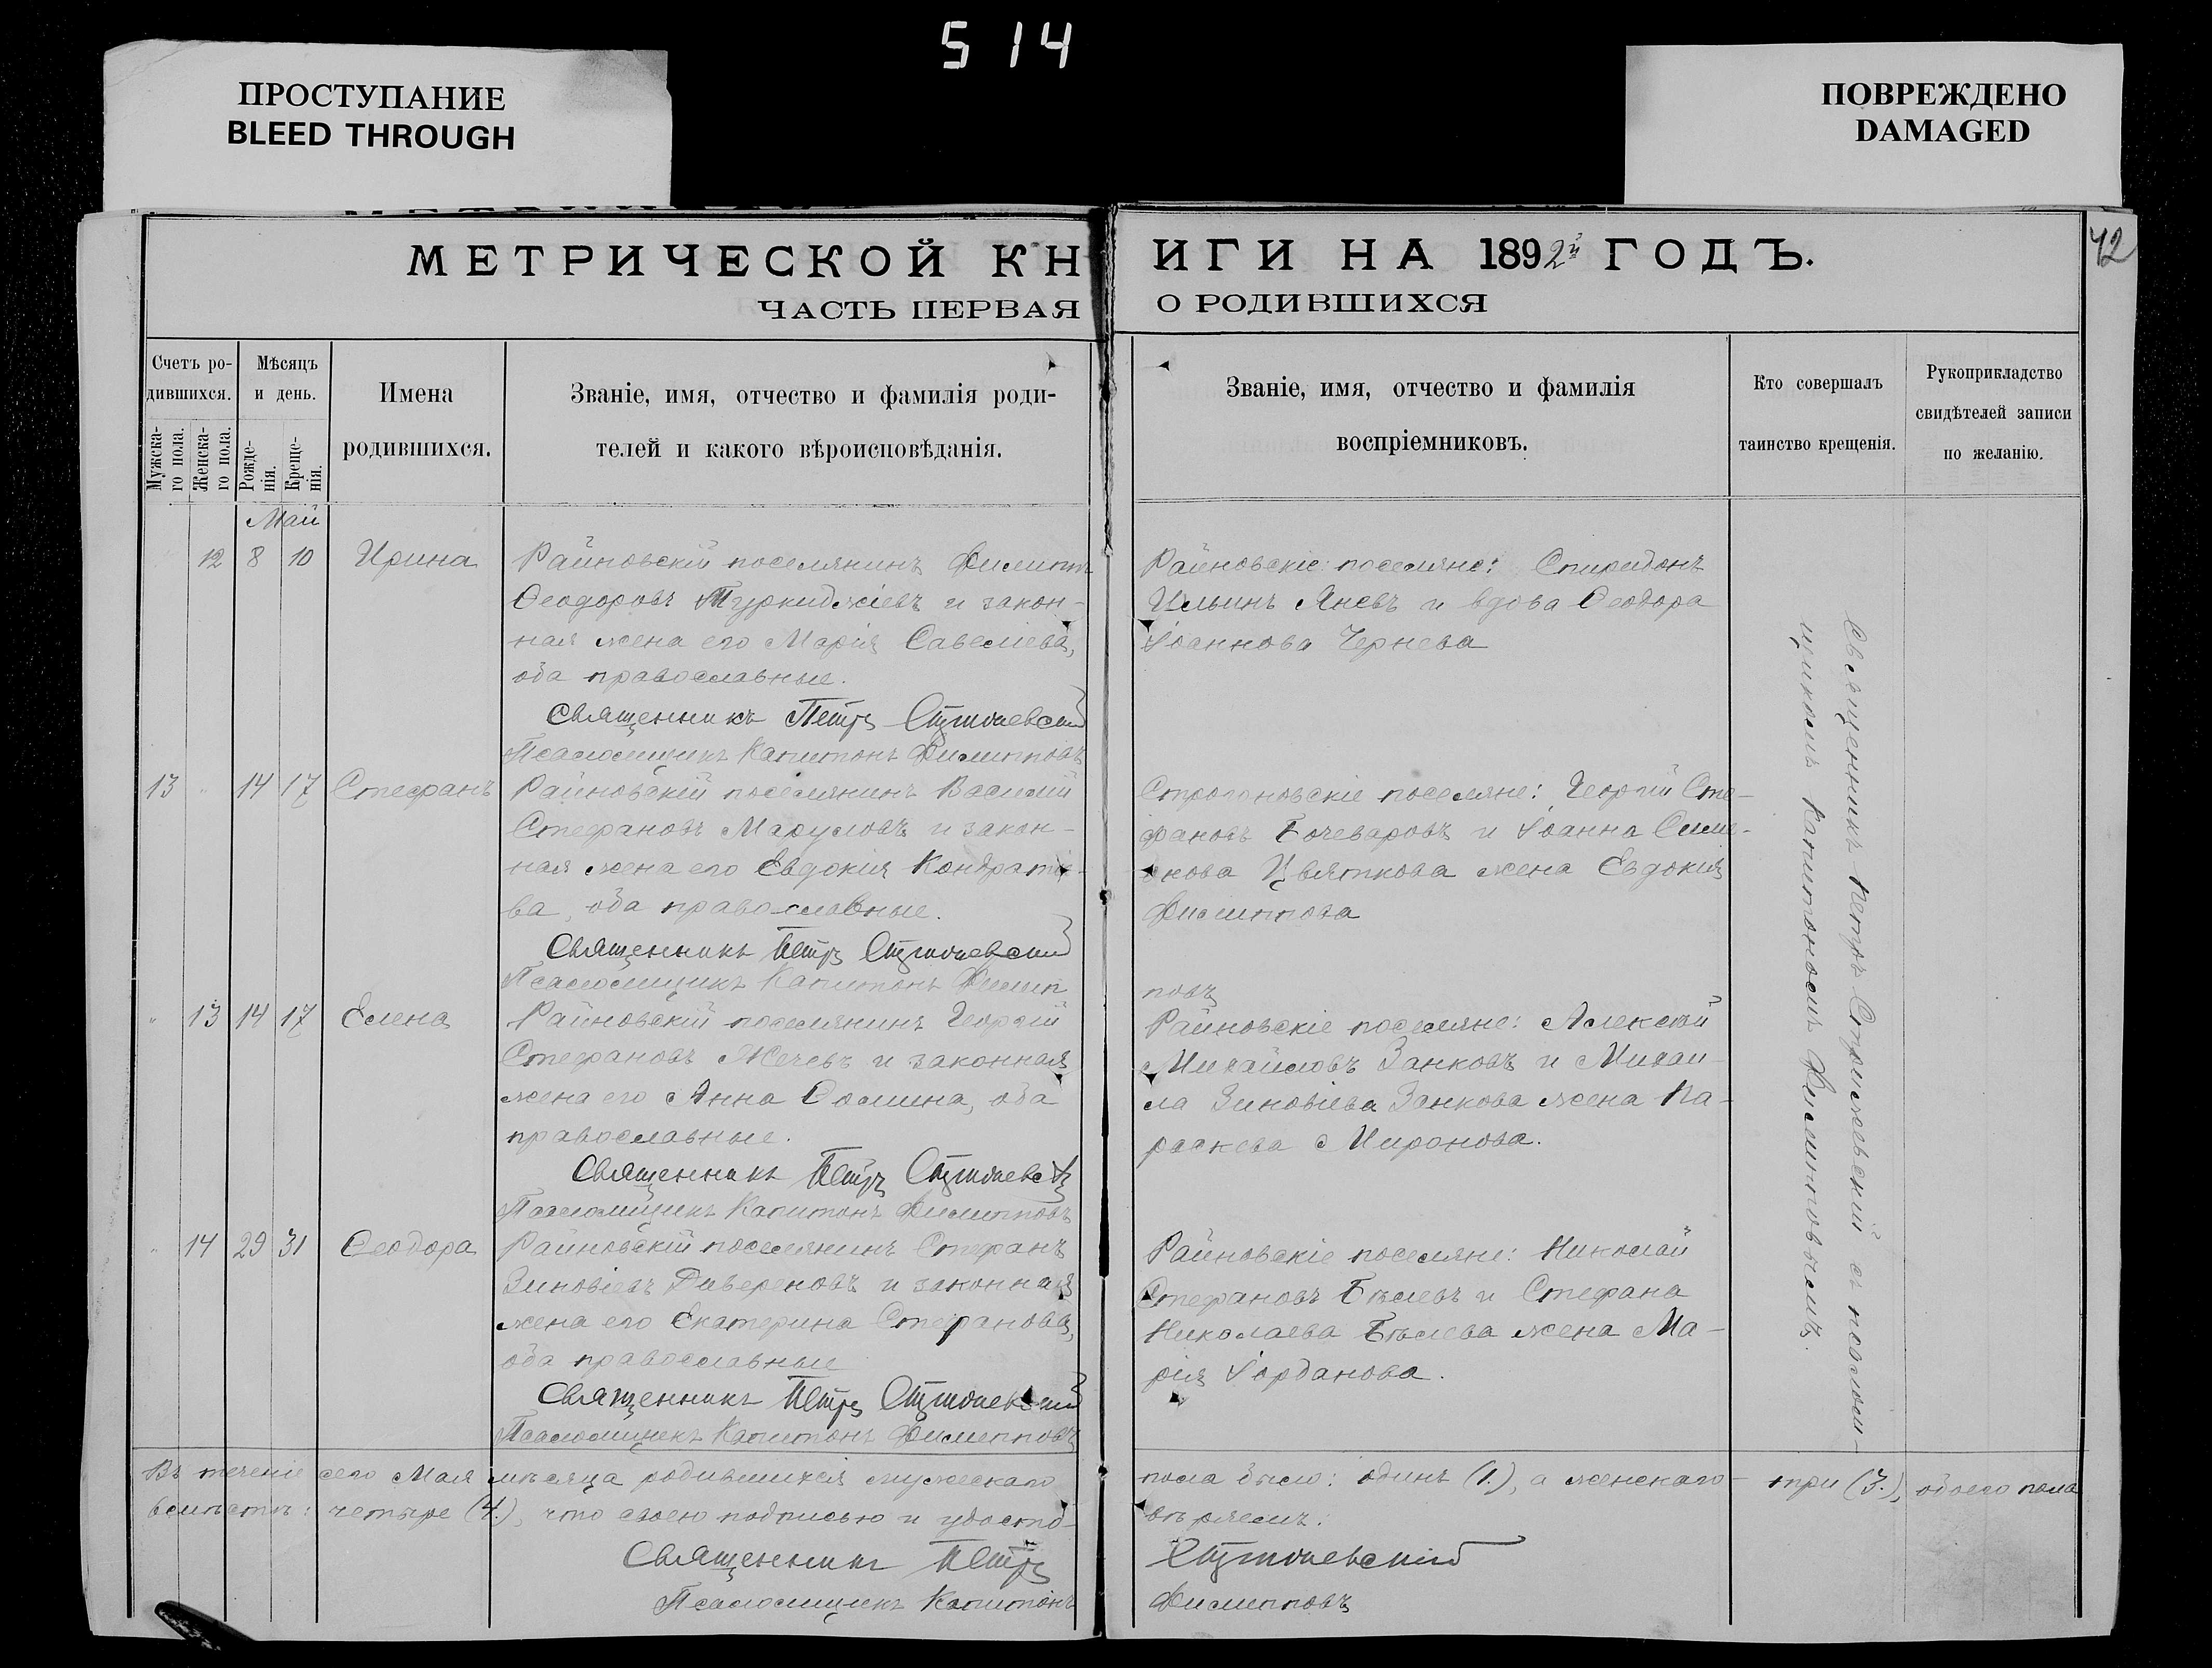 5 14
ПРОСТУПАНИЕ
BLEED THROUGH
ПОВРЕЖДЕНО
DAMAGED
42
МЕТРИЧЕСКОЙ КНИГИ НА 1892й ГОДЪ.
ЧАСТЬ ПЕРВАЯ О РОДИВШИХСЯ
Счетъ ро-
дившихся.
Мужска-
го пола.
Женска-
го пола.
Мѣсяцъ
и день.
Рожде-
нія.
Креще-
нія.
Имена
родившихся.
Званіе, имя, отчество и фамилія роди-
телей и какого вѣроисповѣданія.
Званіе, имя, отчество и фамилія
воспріемниковъ.
Кто совершалъ
таинство крещенія.
Рукоприкладство
свидѣтелей записи
по желанію.
Май
12 8 10 Ирина
Райновскій поселянинъ Филиппъ
Ѳеодоровъ Туркиджіевъ и закон-
ная жена его Марія Савеліева,
оба православные.
Священникъ Петръ
Псаломщикъ Капитонъ Филипповъ
Райновскіе поселяне: Спиридонъ
Ильинъ Яневъ и вдова Ѳеодора
Іоаннова Чернева
13 " 14 17 Стефанъ
Райновскій поселянинъ Василій
Стефановъ и закон-
ная жена его Евдокія Кондратіе-
ва, оба православные.
Священникъ Петръ
Псаломщикъ Капитонъ Филип
повъ
Строгановскіе поселяне: Георгій Сте-
фановъ Бочеваровъ и Іоанна Симе-
онова Цвяткова жена Евдокія
Филиппова
" 13 14 17 Елена
Райновскій поселянинъ Георгій
Стефановъ Жечевъ и законная
жена его Анна Ѳомина, оба
православные.
Священникъ Петръ
Псаломщикъ Капитонъ Филипповъ
Райновскіе поселяне: Алексѣй
Михайловъ Занковъ и Михаи-
ла Зиновіева Занкова жена Па-
раскева Миронова.
" 14 29 31 Ѳеодора
Райновскій поселянинъ Стефанъ
Зиновіевъ и законная
жена его Екатерина Стефанова,
оба православные
Священникъ Петръ
Псаломщикъ Капитонъ Филипповъ
Райновскіе поселяне: Николай
Стефановъ Бѣлевъ и Стефана
Николаева Бѣлева жена Ма-
рія Іорданова.
Священникъ Петръ съ псалом-
щикомъ Капитономъ Филипповымъ.
Въ теченіе сего Мая мѣсяца родившихся мужескаго пола было: одинъ (1.), а женскаго три (3.), обоего пола
вмѣстѣ: четыре (4.), что своею подписью и удосто-вѣряемъ:
Священникъ Петръ
Псаломщикъ Капитонъ Филипповъ